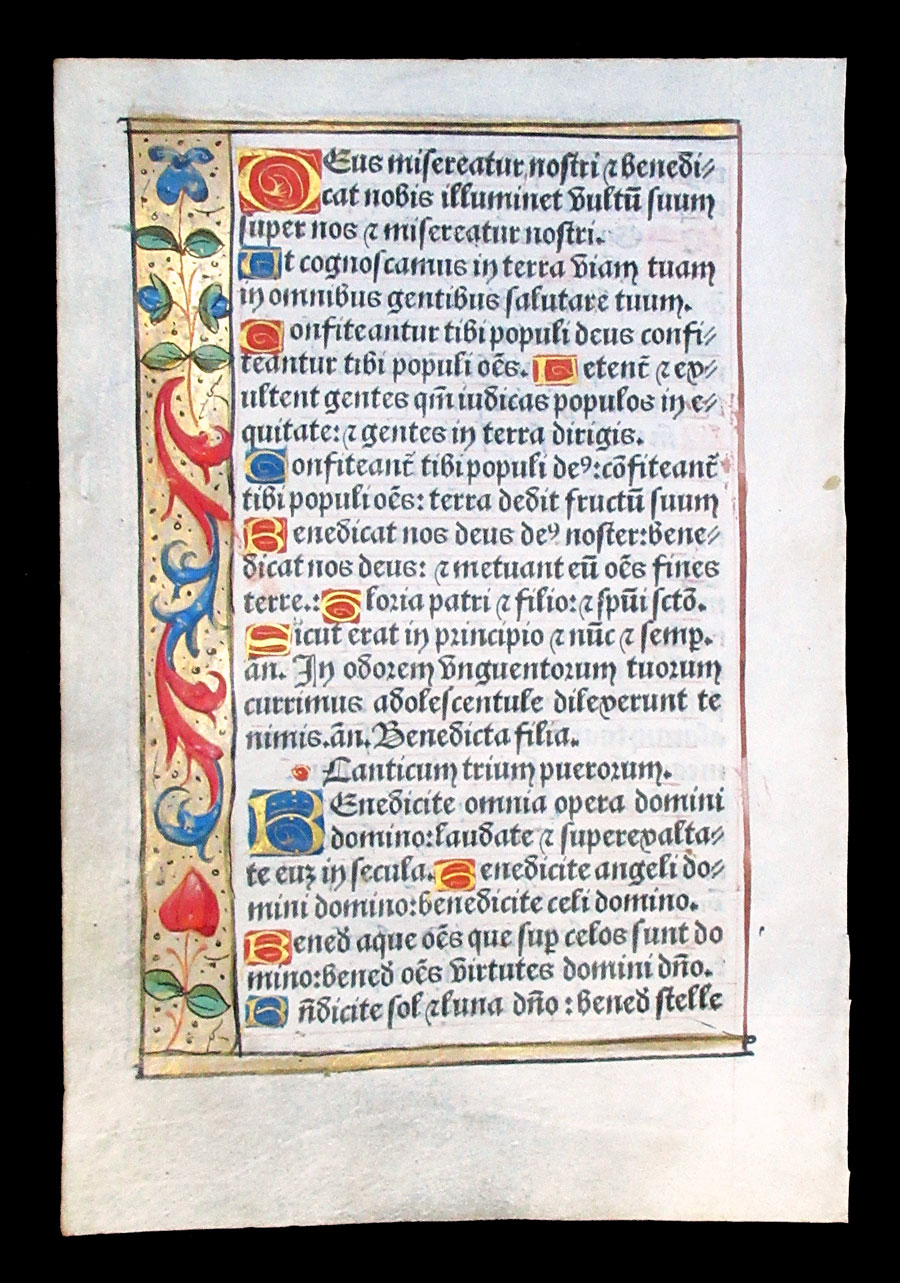 DEus misereatur nostri ⁊ benedi⸗
cat nobis illuminet vultū suum
super nos ⁊ misereatur nostri.
Ut cognoscamus in terra viam tuam
in omnibus gentibus salutare tuum.
Confiteantur tibi populi deus confi⸗
teantur tibi populi oēs. Letent̄ ⁊ ex⸗
ultent gentes qm̄ iudicas populos in e⸗
quitate: ⁊ gentes in terra dirigis.
Confiteant̄ tibi populi deꝰ: cōfiteant̄
tibi populi oēs: terra dedit fructū suum
Benedicat nos deus deꝰ noster: bene⸗
dicat nos deus: ⁊ metuant eū oēs fines
terre.: Gloria patri ⁊ filio: ⁊ spūi sctō.
Sicut erat in principio ⁊ nūc ⁊ semꝑ.
an. In odorem vnguentorum tuorum
currimus adolescentule dilexerunt te
nimis. ān. Benedicta filia.
Canticum trium puerorum.
BEnedicite omnia opera domini
domino: laudate ⁊ superexalta⸗
te euꝫ in secula. Benedicite angeli do⸗
mini domino: benedicite celi domino.
Bened̄ aque oēs que suꝑ celos sunt do
mino: bened̄ oēs virtutes domini dn̄o.
Bn̄dicite sol ⁊ luna dn̄o: bened̄ stelle